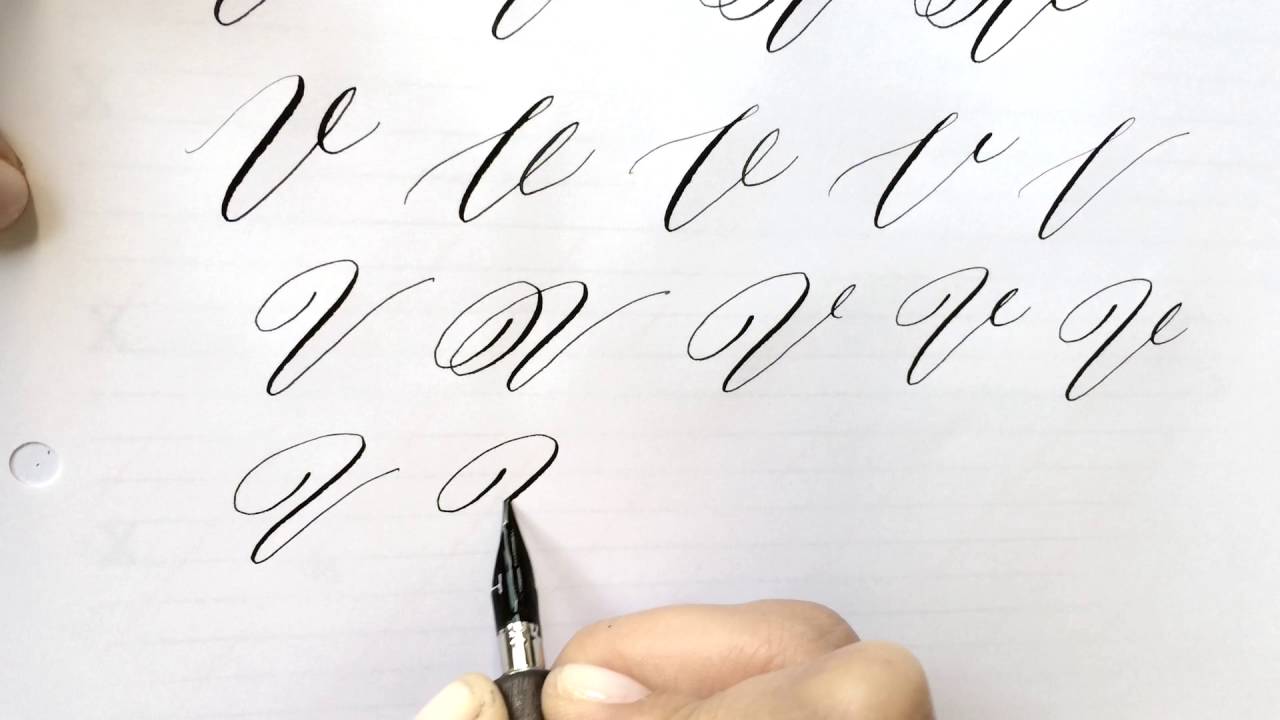 V V V V V
V V V V V
V